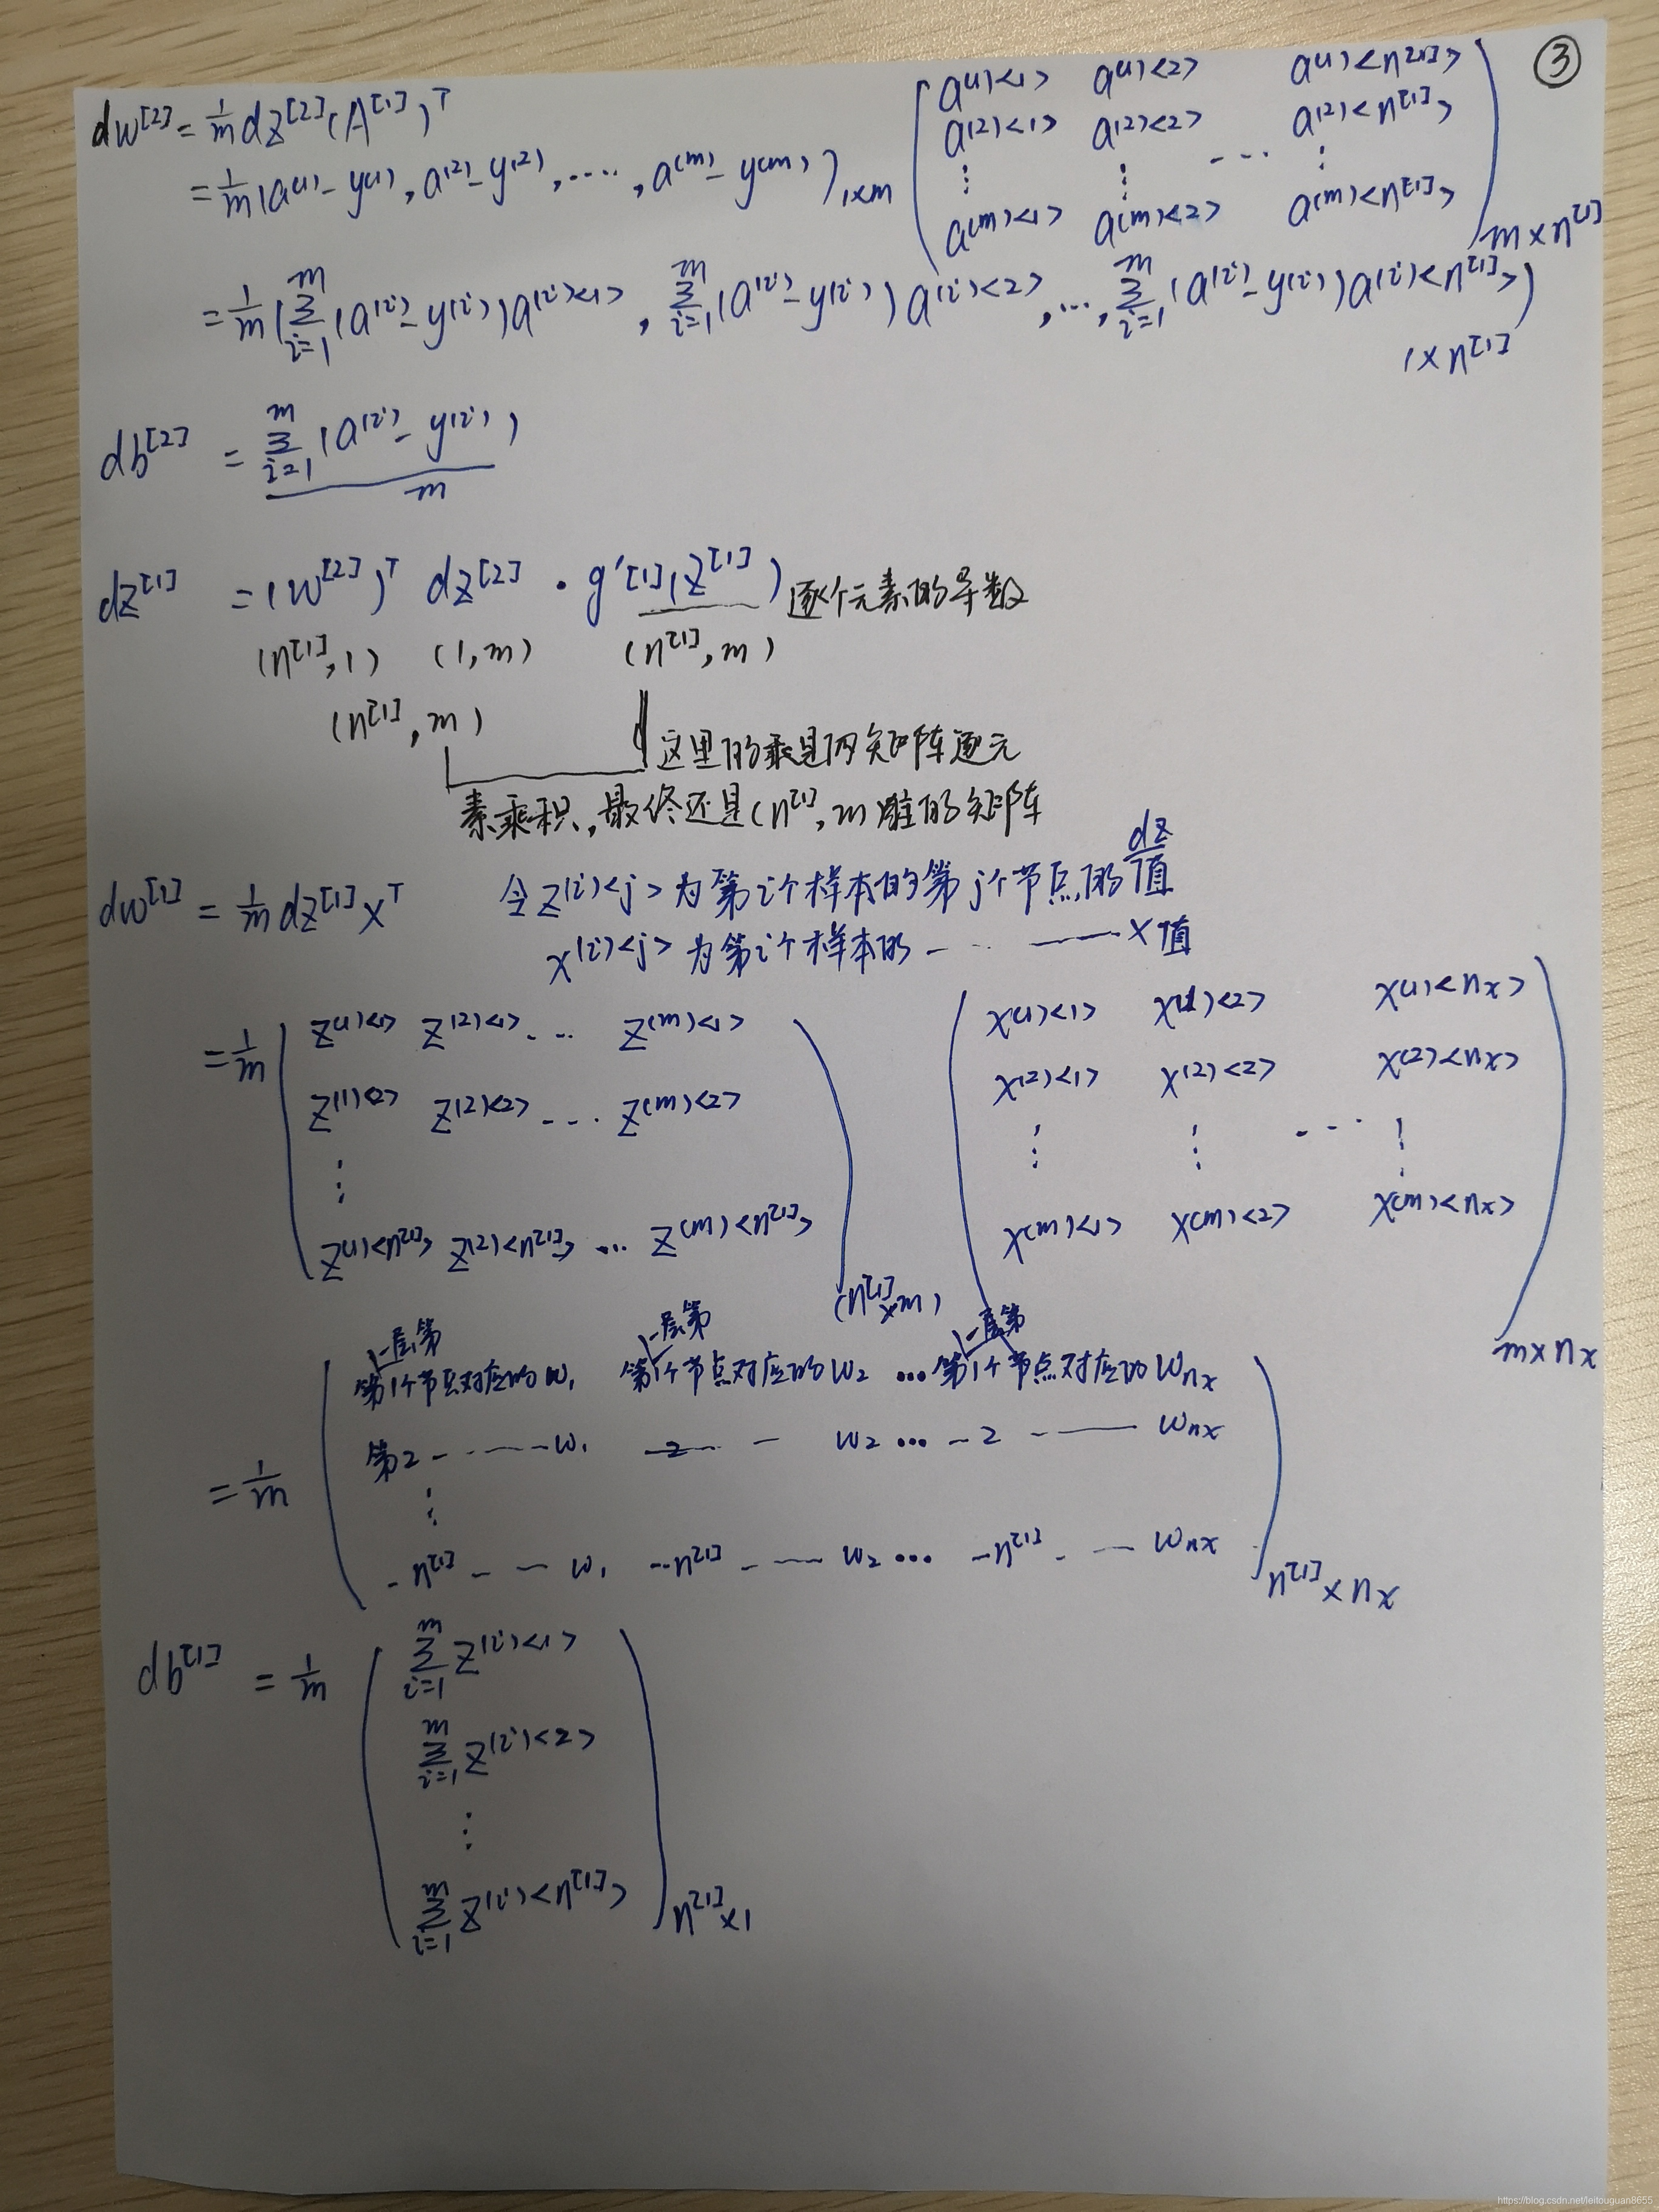 ③
dw^[2] = 1/m dz^[2] (A^[1])^T
= 1/m (a^(1) - y^(1), a^(2) - y^(2), ....., a^(m) - y^(m))_{1×m}
a^(1)<1> a^(1)<2> a^(1)<n^[1]>
a^(2)<1> a^(2)<2> a^(2)<n^[1]>
⋮ ⋮ --- ⋮
a^(m)<1> a^(m)<2> a^(m)<n^[1]>
m×n^[1]
= 1/m (∑_{i=1}^m (a^(i) - y^(i)) a^(i)<1>, ∑_{i=1}^m (a^(i) - y^(i)) a^(i)<2>, ..., ∑_{i=1}^m (a^(i) - y^(i)) a^(i)<n^[1]>)
1×n^[1]
db^[2] = ∑_{i=1}^m (a^(i) - y^(i)) / m
dz^[1] = (w^[2])^T dz^[2] · g'^[1](z^[1]) 逐个元素的导数
(n^[1],1) (1,m) (n^[1],m)
(n^[1],m)
这里的乘是两矩阵逐元
素乘积,最终还是(n^[1],m)维的矩阵
dw^[1] = 1/m dz^[1] x^T 令z^(i)<j>为第i个样本的第j个节点的dz值
x^(i)<j>为第i个样本的 - -- —— x值
= 1/m
z^(1)<1> z^(2)<1> --- z^(m)<1>
z^(1)<2> z^(2)<2> --- z^(m)<2>
⋮
z^(1)<n^[1]> z^(2)<n^[1]> ... z^(m)<n^[1]>
(n^[1]×m)
x^(1)<1> x^(1)<2> x^(1)<nx>
x^(2)<1> x^(2)<2> x^(2)<nx>
⋮ ⋮ --- ⋮
x^(m)<1> x^(m)<2> x^(m)<nx>
m×nx
一层第 一层第 一层第
第1个节点对应的w1 第1个节点对应的w2 ... 第1个节点对应的wnx
第2 - -- —— w1 — 2 -- - w2 ... - 2 - —— wnx
= 1/m ⋮
- n^[1] - — w1 -- n^[1] - —— w2 ... - n^[1] - — wnx
n^[1]×nx
db^[1] = 1/m
∑_{i=1}^m z^(i)<1>
∑_{i=1}^m z^(i)<2>
⋮
∑_{i=1}^m z^(i)<n^[1]>
n^[1]×1
https://blog.csdn.net/leitouguan8655